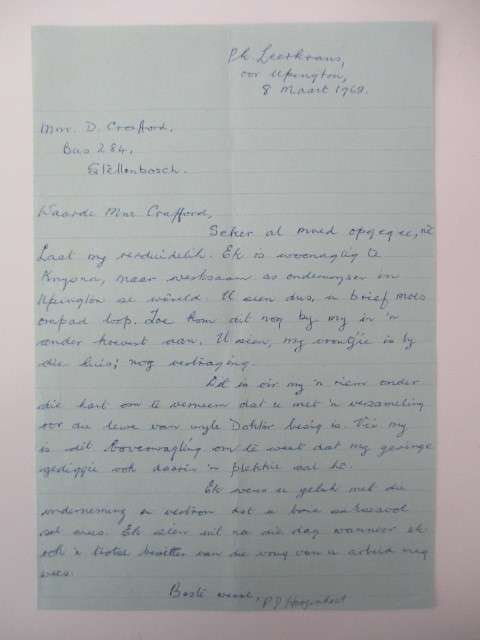 Pk Leerkrans,
oor Upington,
8 Maart 1968.
Mnr. D. Crafford,
Bus 284,
Stellenbosch.
Waarde Mnr Crafford,
Seker al moed opgegee, nè
Laat my verduidelik. Ek is woonagtig te
Knysna, maar werksaam as onderwyser in
Upington se wêreld. U sien dus, u brief moes
ompad loop. Toe kom dit nog by my in 'n
ander koevert aan. U sien, my vroutjie is by
die huis; nog vertraging.
Dit is vir my 'n riem onder
die hart om te verneem dat u met 'n versameling
oor die lewe van wyle Dokter besig is. Vir my
is dit bo verwagting om te weet dat my geringe
gediggie ook daarin 'n plekkie sal hê.
Ek wens u geluk met die
onderneming en vertrou dat u baie suksesvol
sal wees. Ek sien uit na die dag wanneer ek
ook 'n trotse besitter van die vrug van u arbeid mag
wees.
Beste wense,